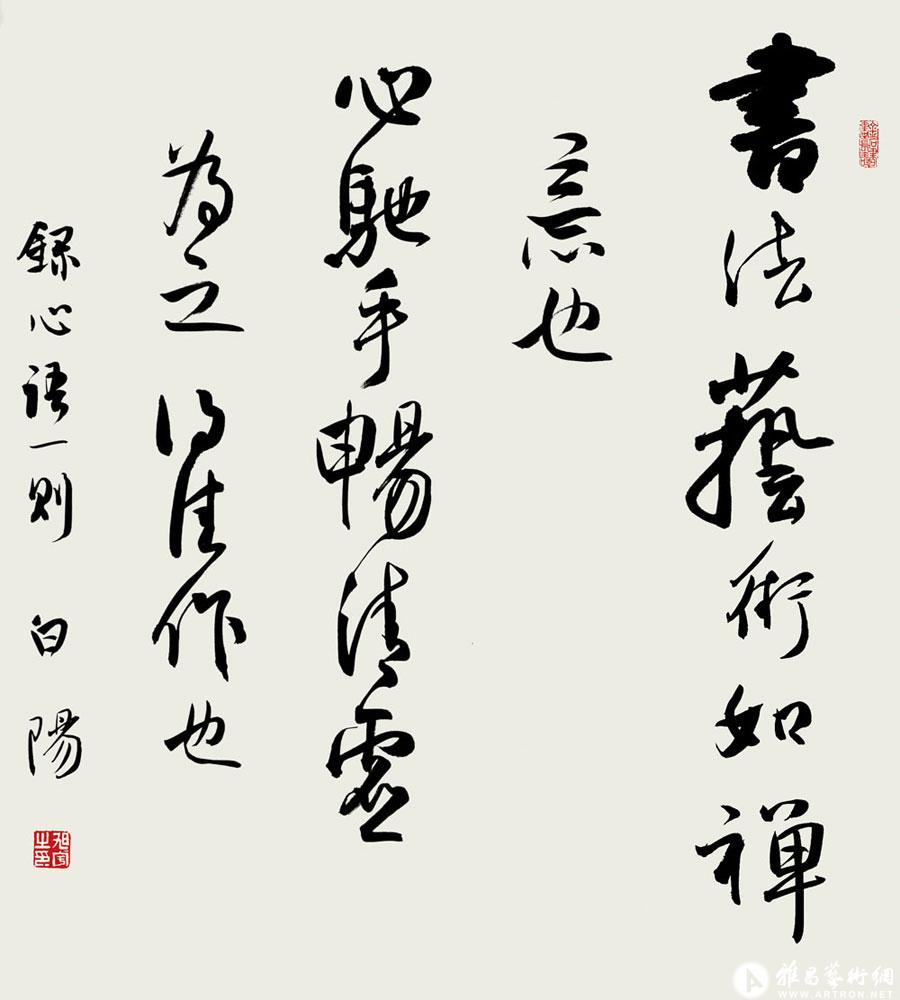 書法藝術如禪
意也
心馳手暢清虛
為之得佳作也
錄心語一則 白陽
雅昌藝術網
WWW.ARTRON.NET